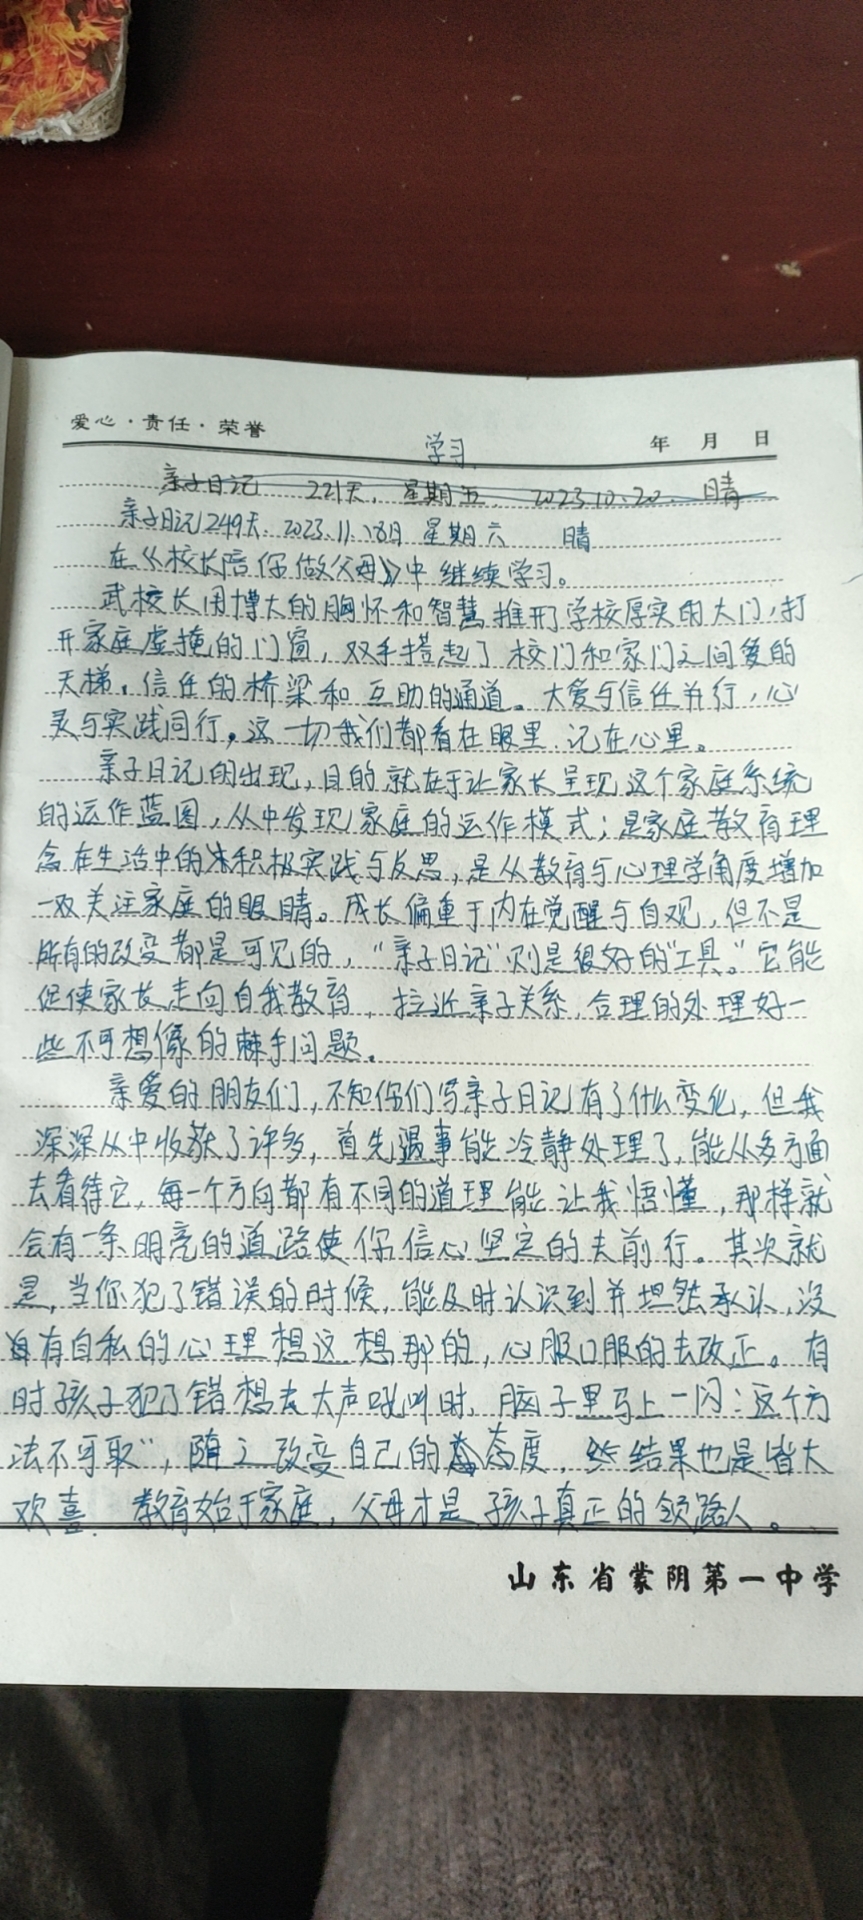 爱心·责任·荣誉
年 月 日
学习
亲子日记 221天. 星期五. 2023.10.20. 晴
亲子日记249天. 2023.11.18日 星期六 晴
在《校长陪你做父母》中继续学习。
武校长用博大的胸怀和智慧推开了学校厚实的大门，打
开家庭虚掩的门窗，双手搭起了校门和家门之间爱的
天梯、信任的桥梁和互助的通道。大爱与信任并行，心
灵与实践同行。这一切我们都看在眼里.记在心里。
亲子日记的出现，目的就在于让家长呈现这个家庭系统
的运作蓝图，从中发现家庭的运作模式；是家庭教育理
念在生活中的积极实践与反思，是从教育与心理学角度增加
一双关注家庭的眼睛。成长偏重于内在觉醒与自观，但不是
所有的改变都是可见的，“亲子日记”则是很好的“工具。”它能
促使家长走向自我教育，拉近亲子关系，合理的处理好一
些不可想像的棘手问题。
亲爱的朋友们，不知你们写亲子日记有了什么变化，但我
深深从中收获了许多，首先遇事能冷静处理了，能从多方面
去看待它，每一个方向都有不同的道理能让我悟懂，那样就
会有一条明亮的道路使你信心坚定的去前行。其次就
是，当你犯了错误的时候，能及时认识到并坦然承认，没
有自私的心理想这想那的，心服口服的去改正。有
时孩子犯了错想去大声吼叫时，脑子里马上一闪：这个方
法不可取”，随之改变自己的态度，结果也是皆大
欢喜. 教育始于家庭，父母才是孩子真正的领路人。
山东省蒙阴第一中学